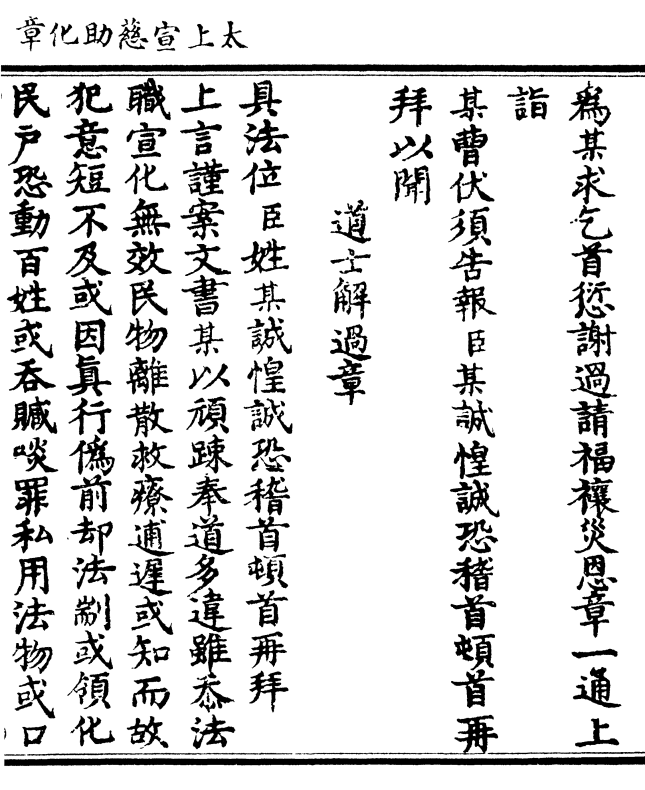 太上宣慈助化章
爲某求乞首愆謝過請福禳災恩章一通上
詣
某曹伏須告報臣某誠惶誠恐稽首頓首再
拜以聞
道士解過章
具法位臣姓某誠惶誠恐稽首頓首再拜
上言謹案文書某以頑踈奉道多違雖忝法
職宣化無效民物離散救療逋遲或知而故
犯意短不及或因眞行僞前却法制或領化
民戶恐動百姓或吞贓啖罪私用法物或口